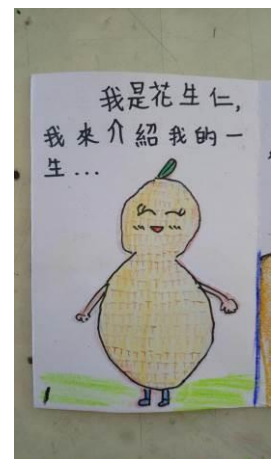 我是花生仁,
我來介紹我的一
生...
1